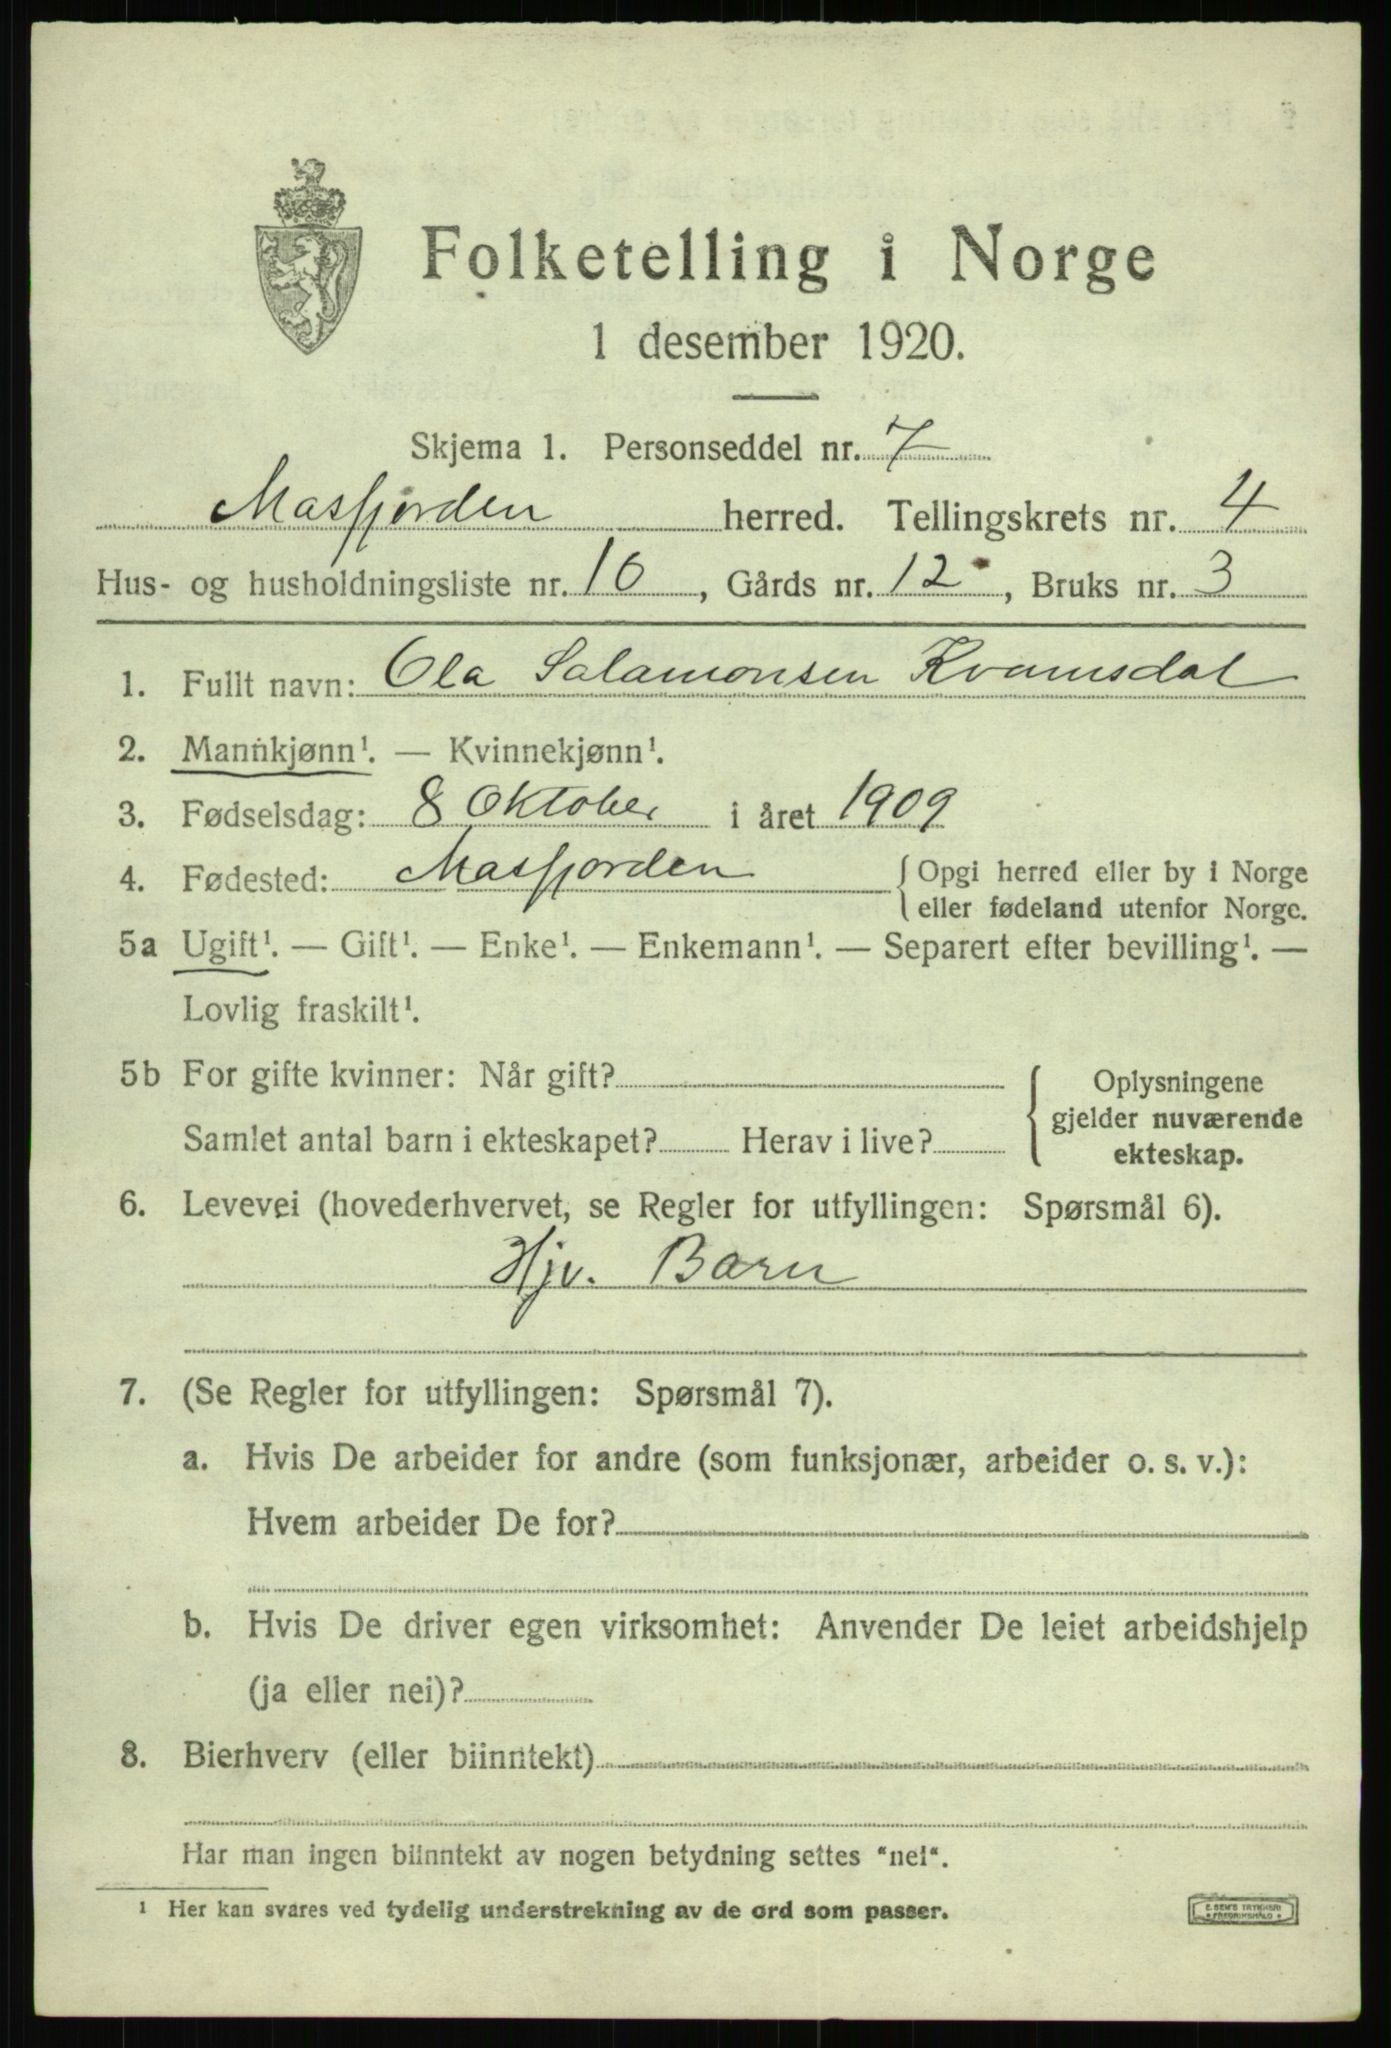 Folketelling i Norge
1 desember 1920.
Skjema 1. Personseddel nr. 7
Masfjorden herred. Tellingskrets nr. 4
Hus- og husholdningsliste nr. 10, Gårds nr. 12, Bruks nr. 3
1. Fullt navn: Ola Salamonsen Kvamsdal
2. Mannkjønn¹. — Kvinnekjønn¹.
3. Fødselsdag: 8 Oktober i året 1909
4. Fødested: Masfjorden { Opgi herred eller by i Norge
eller fødeland utenfor Norge.
5a Ugift¹. — Gift¹. — Enke¹. — Enkemann¹. — Separert efter bevilling¹. —
Lovlig fraskilt¹.
5b For gifte kvinner: Når gift?
Samlet antal barn i ekteskapet? Herav i live?
{ Oplysningene
gjelder nuværende
ekteskap.
6. Levevei (hovederhvervet, se Regler for utfyllingen: Spørsmål 6).
Hjv. Barn
7. (Se Regler for utfyllingen: Spørsmål 7).
a. Hvis De arbeider for andre (som funksjonær, arbeider o. s. v.):
Hvem arbeider De for?
b. Hvis De driver egen virksomhet: Anvender De leiet arbeidshjelp
(ja eller nei)?
8. Bierhverv (eller biinntekt)
Har man ingen biinntekt av nogen betydning settes "nei".
¹ Her kan svares ved tydelig understrekning av de ord som passer.